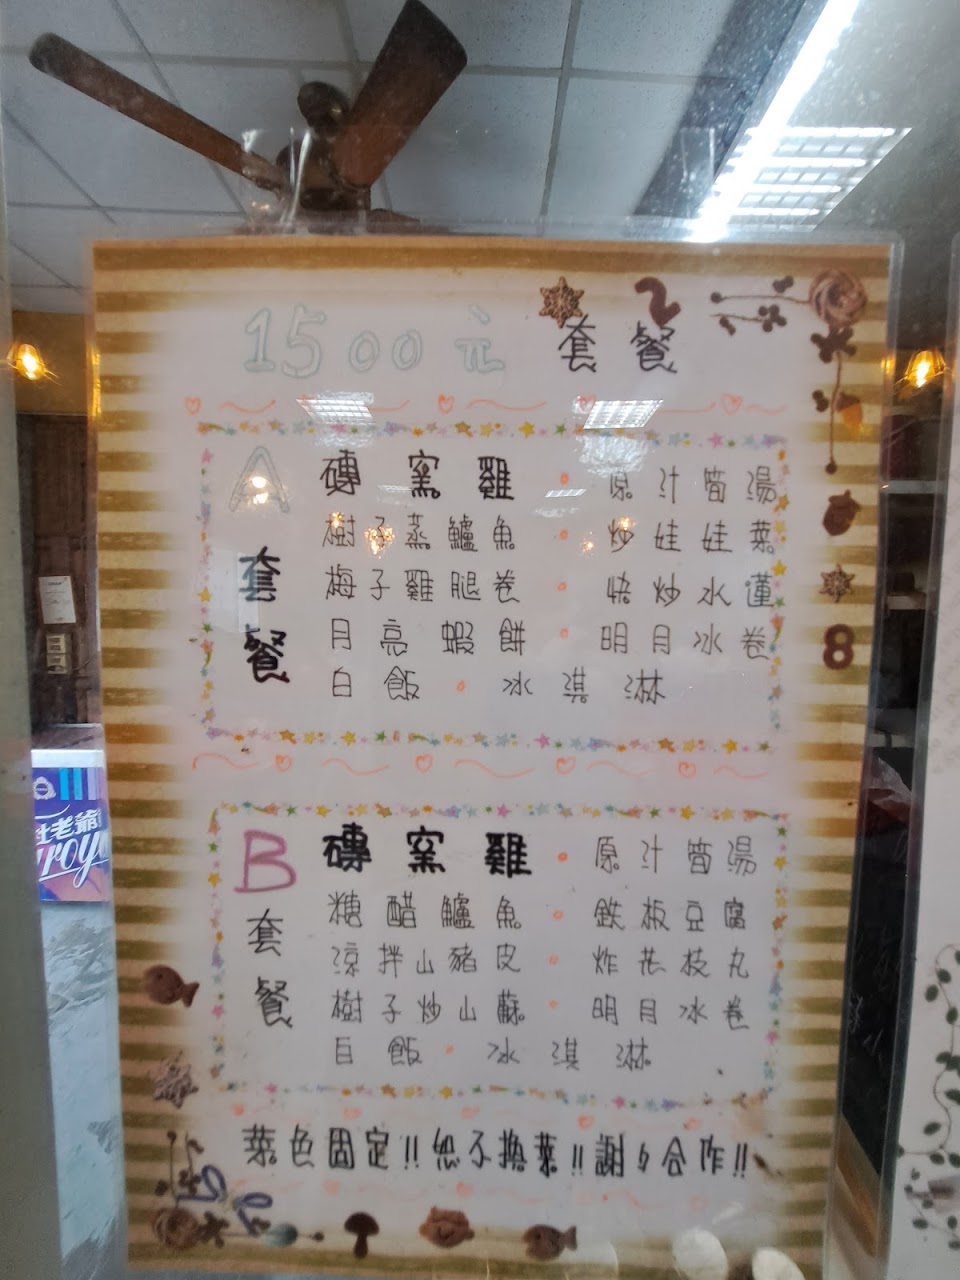 1500元 套餐
A套餐
磚窯雞 • 原汁筍湯
樹子蒸鱸魚 • 炒娃娃菜
梅子雞腿卷 • 快炒水蓮
月亮蝦餅 • 明月冰卷
白飯 • 冰淇淋
B套餐
磚窯雞 • 原汁筍湯
糖醋鱸魚 • 鉄板豆腐
涼拌山豬皮 • 炸花枝丸
樹子炒山蘇 • 明月冰卷
白飯 • 冰淇淋
菜色固定!!恕不換菜!!謝々合作!!
2
8
老爺